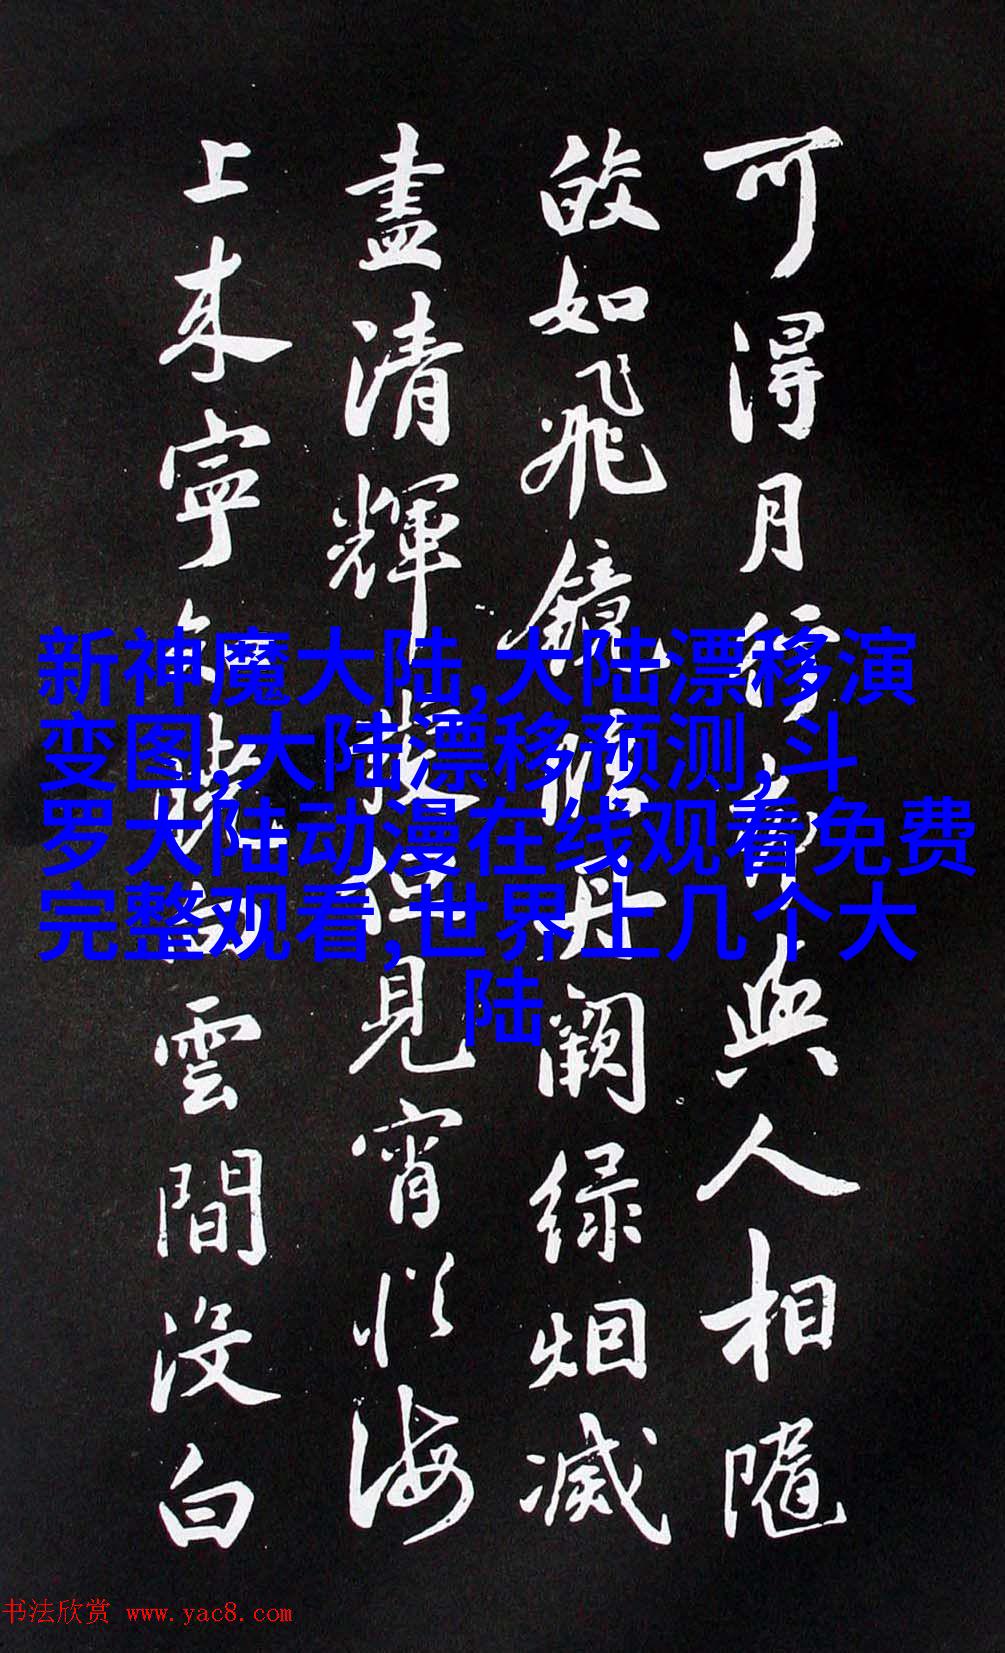 可得月行却與人相隨
皎如飛鏡臨丹闕緑烟滅
盡清輝發但見宵從海
上来寧知曉向雲間没白
新神魔大陆,大陆漂移演
变图,大陆漂移预测,斗
罗大陆动漫在线观看免费
完整观看,世界上几个大
陆
书法欣赏 www.yac8.com